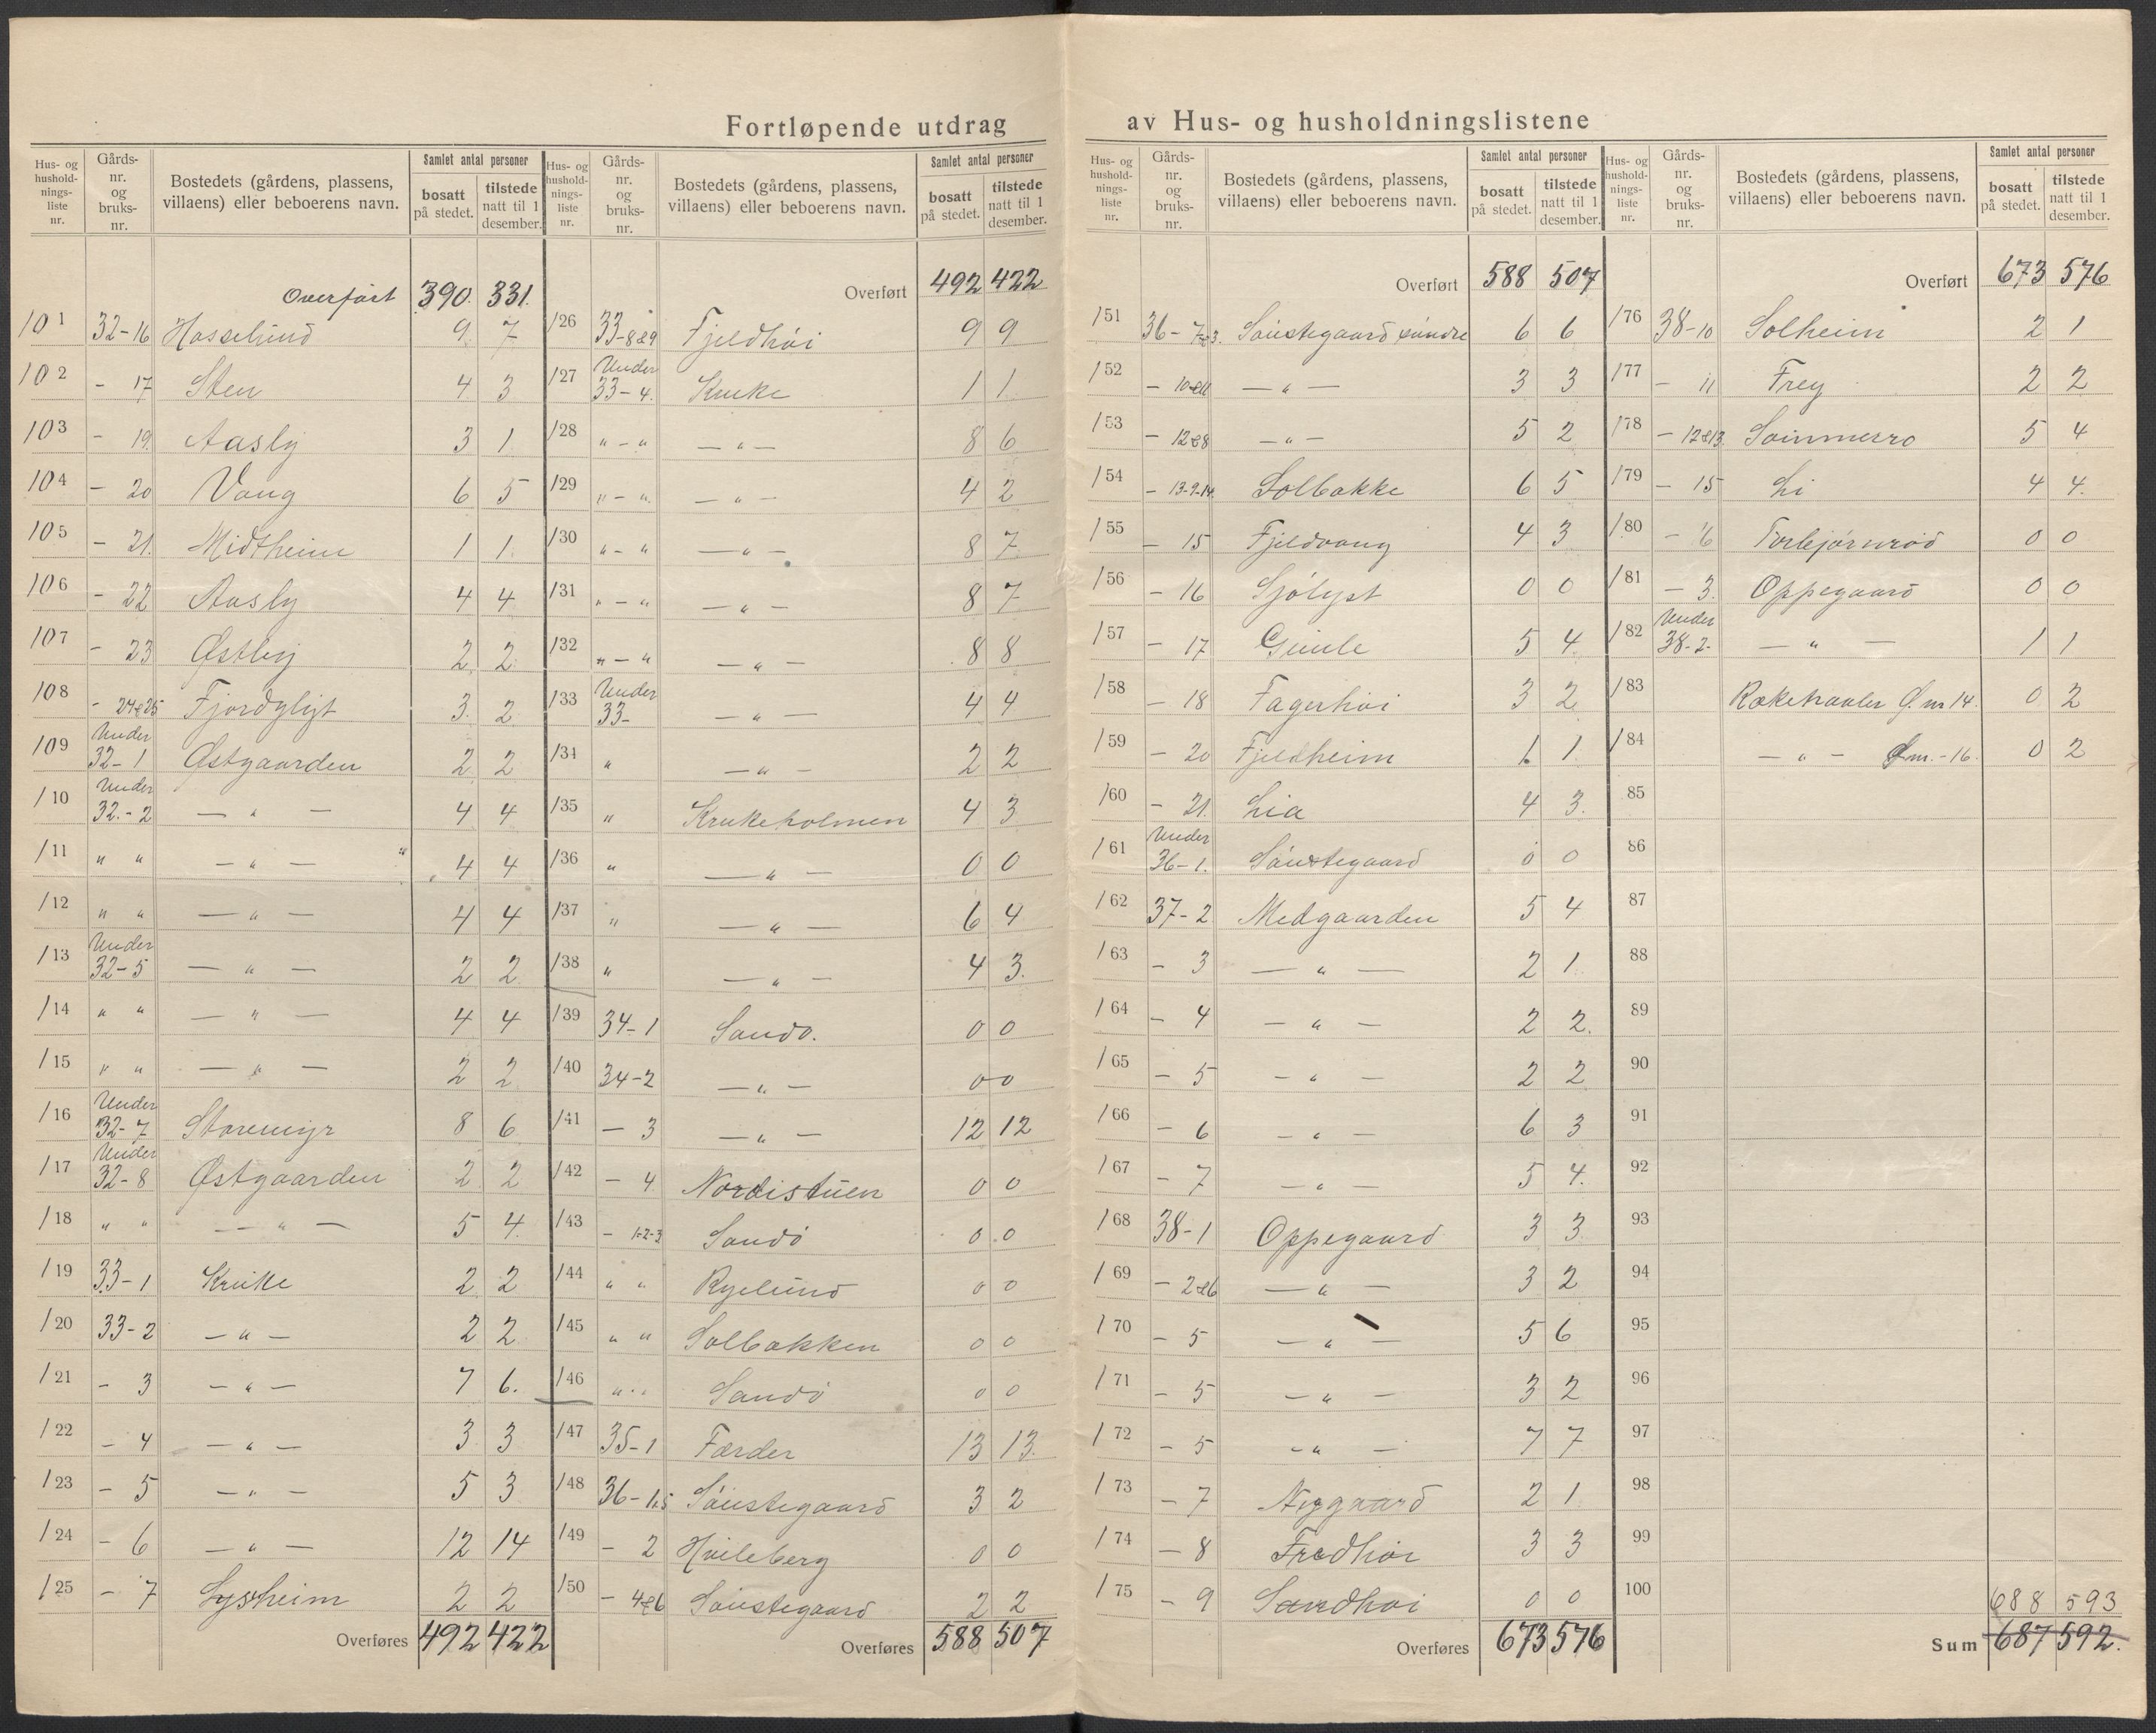 Fortløpende utdrag av Hus- og husholdningslistene
Hus- og hushold-nings-liste nr. | Gårds-nr. og bruks-nr. | Bostedets (gårdens, plassens, villaens) eller beboerens navn. | Samlet antal personer bosatt på stedet. | tilstede natt til 1 desember.
Overført 390. 331.
101 32-16 Hasselund 9 7
102 - 17 Sten 4 3
103 - 19 Aasly 3 1
104 - 20 Vang 6 5
105 - 21. Midtheim 1 1
106 - 22 Aasly 4 4
107 - 23 Østby 2 2
108 - 24&25 Fjordgligt 3 2
109 Under 32-1 Østgaarden 2 2
/10 Under 32.-2 — " — 4 4
/11 " " — " — 4 4
/12 " " — " — 4 4
/13 Under 32-5 — " — 2 2
/14 " " — " — 4 4
/15 " " — " — 2 2
/16 Under 32-7 Storemyr 8 6
/17 Under 32-8 Østgaarden 2 2
/18 " " — " — 5 4
/19 33-1 Kruke 2 2
/20 33-2 — " — 2 2
/21 - 3 — " — 7 6.
/22 - 4 — " — 3 3
/23 - 5 — " — 5 3
/24 - 6 — " — 12 14
/25 - 7 Lysheim 2 2
Overføres 492 422
Hus- og hushold-nings-liste nr. | Gårds-nr. og bruks-nr. | Bostedets (gårdens, plassens, villaens) eller beboerens navn. | Samlet antal personer bosatt på stedet. | tilstede natt til 1 desember.
Overført 492 422
/26 33-8&9 Fjeldhöi 9 9
/27 Under 33-4. Kruke 1 1
/28 " - " — " — 8 6
/29 " - " — " — 4 2
/30 " - " — " — 8 7
/31 " - " — " — 8 7
/32 " - " — " — 8 8
/33 Under 33- — " — 4 4
/34 " — " — 2 2
/35 " Krukeholmen 4 3
/36 " — " — 0 0
/37 " — " — 6 4
/38 " — " — 4 3.
/39 34-1 Sandö. 0 0
/40 34-2 — " — 0 0
/41 - 3 — " — 12 12
/42 - 4 Nordistuen 0 0
/43 - 1-2-3 Sandö 0 0
/44 " " Ryelund 0 0
/45 " " Solbakken 0 0
/46 " " Sandö 0 0
/47 35-1 Færder 13 13.
/48 36-1.5 Söustegaard 3 2
/49 - 2 Hvileberg 0 0
/50 - 4&6 Söustegaard 2 2
Overføres 588 507
Hus- og hushold-nings-liste nr. | Gårds-nr. og bruks-nr. | Bostedets (gårdens, plassens, villaens) eller beboerens navn. | Samlet antal personer bosatt på stedet. | tilstede natt til 1 desember.
Overført 588 507
/51 36-7&3. Söustegaard söndre 6 6
/52 - 10&11 — " — 3 3
/53 - 12&8 — " — 5 2
/54 - 13-9-14. Solbakke 6 5
/55 - 15 Fjeldvang 4 3
/56 - 16 Sjölyst 0 0
/57 - 17 Gimle 5 4
/58 - 18 Fagerhöi 3 2
/59 - 20 Fjeldheim 1 1
/60 - 21. Lia 4 3.
/61 Under 36-1. Söustegaard 0 0
/62 37-2 Medgaarden 5 4
/63 - 3 — " — 2 1
/64 - 4 — " — 2 2.
/65 - 5 — " — 2 2
/66 - 6 — " — 6 3
/67 - 7 — " — 5 4.
/68 38-1 Oppegaard 3 3
/69 - 2&6 — " — 3 2
/70 - 5 — " — 5 6
/71 - 5 — " — 3 2
/72 - 5 — " — 7 7
/73 - 7 Nygaard 2 1
/74 - 8 Fredhöi 3 3
/75 - 9 Sandhöi 0 0
Overføres 673 576
Hus- og hushold-nings-liste nr. | Gårds-nr. og bruks-nr. | Bostedets (gårdens, plassens, villaens) eller beboerens navn. | Samlet antal personer bosatt på stedet. | tilstede natt til 1 desember.
Overført 673 576
/76 38-10 Solheim 2 1
/77 - 11 Frey 2 2
/78 - 12&13. Sommerro 5 4
/79 - 15 Li 4 4.
/80 - 16 Torbjörnröd 0 0
/81 - 3. Oppegaard 0 0
/82 Under 38-2- — " — 1 1
/83 Rækehavler Ø. nr 14. 0 2
/84 — " — Ø nr.-16. 0 2
85
86
87
88
89
90
91
92
93
94
95
96
97
98
99
100
688 593
Sum 687 592.